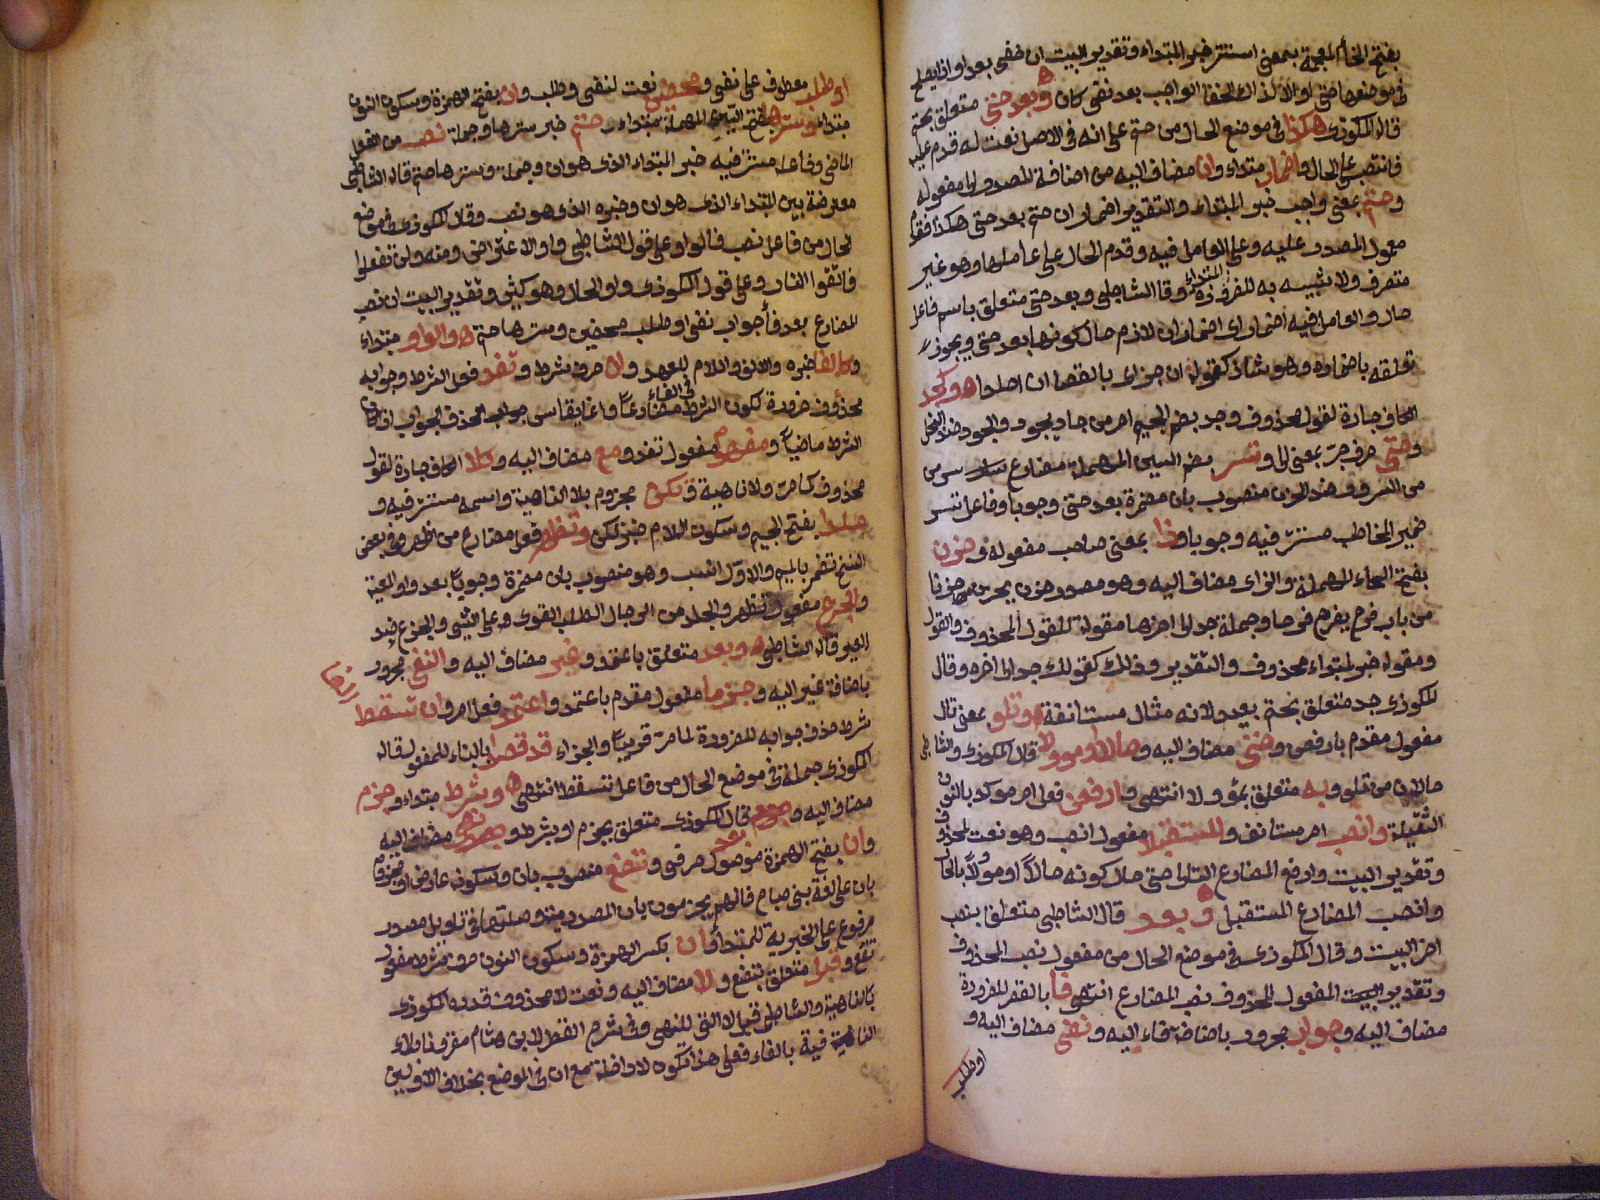 بفتح الخاء المعجمة بمعنى استتر خبر المبتداء وتقدير البيت ان خفى بعد او اذا يصلح
فى موضعها حتى او الا لذلك الخفا الواجب بعد نفى كان ه وبعد حتى متعلق بحتم
قاله المكودى هكذا فى موضع الحال من حتم على انه فى الاصل نعت له قدم عليه
فانتصب على الحال واضمار مبتداء وان مضاف اليه من اضافة المصدر الى مفعوله
وحتم بمعنى واجب خبر المبتداء والتقدير اضمار ان حتم بعد حتى هكذا فقدم
معمول المصدر عليه وعلى العامل فيه وقدم الحال على عاملها وهو غير
متصرف ولا شبيه به للضرورة وقال الشاطبى وبعد حتى متعلق باسم فاعل
حال والعامل فيه اضمار اى اضمار ان لازم حال كونها بعد حتى ويجوز
تعلقه باضماره وهو شاذ كقوله ان جزاى بالعصا ان اجلدا ه وكجد
الكاف جارة لقول محذوف وجد بضم الجيم امر من جاد يجود والجود ضد البخل
وحتى حرف جر بمعنى الى وتسر بضم السين المهملة مضارع سر
من السرور ضد الحزن منصوب بان مضمرة بعد حتى وجوبا وفاعل تسر
ضمير المخاطب مستتر فيه وجوبا وذا بمعنى صاحب مفعوله وحزن
بفتح الحاء المهملة والزاى مضاف اليه وهو مصدر حزن يحزن حزنا
من باب فرح يفرح فرحا وجملة جد الى اخرها مقولة للقول المحذوف والقول
ومقوله خبر لمبتداء محذوف والتقدير وذلك كقولك جد الى اخره وقال
المكودى جد متعلق بحتم بعد ولانه مثال مستانفة ه وتلو بمعنى تال
مفعول مقدم بارفعن وحتى مضاف اليه وحالا او موولا قال المكودى والشاطبى
حالان من تلو وبه متعلق بمؤولا انتهى وارفعن فعل امر موكد بالنون
الثقيلة وانصب امر مستانف والمستقبلا مفعول انصب وهو نعت لمحذوف
وتقدير البيت وارفع المضارع التالى حتى حال كونه حالا او مؤولا بالحال
وانصب المضارع المستقبل ه وبعد قال الشاطبى متعلق بنصب
اخر البيت وقال المكودى فى موضع الحال من مفعول نصب المحذوف
وتقدير البيت المفعول المحذوف بنصب المضارع انتهى فا بالقصر للضرورة
مضاف اليه وجواب مجرور باضافة فاء اليه ونفى مضاف اليه و
او طلب
او طلب معطوف على نفى ومحضين نعت لنفى وطلب وان بفتح الهمزة وسكون النون
مبتداء وسترها بفتح السين المهملة مبتداء وحتم خبر سترها وجملة نصب من الفعل
الماضى وفاعله مستتر فيه خبر المبتداء الذى هو ان وجملة وسترها حتم قال الشاطبى
معترضة بين المبتداء الذى هو ان وخبره الذى هو نصب وقال المكودى فى موضع
الحال من فاعل نصب فالواو على قول الشاطبى واو الاعتراض ومنه ولن تفعلوا
فاتقوا النار وعلى قول المكودى واو الحال وهو كثير وتقدير البيت ان نصب
المضارع بعد فا جواب نفى او طلب محضين وسترها حتم ه والواو مبتداء
وكالفا خبره والالف واللام للعهد وان حرف شرط وتفد فعل الشرط وجوابه
محذوف ضرورة لكون الشرط مضارعا وانما يقاس حذف الجواب اذا كان
الشرط ماضيا ومفهوم مفعول تفد ومع مضاف اليه وكلا الكاف جارة لقول
محذوف كما مر ولا ناهية وتكن مجزوم بلا الناهية واسمه مستتر فيه و
جلدا بفتح الجيم وسكون اللام خبر تكن وتظهر فعل مضارع من اظهر وفى بعض
النسخ تضمر بالميم والاول انسب وهو منصوب بان مضمرة وجوبا بعد واو المعية
والجزع مفعول تظهر والجلد من الرجال الصلب القوى وعلى الشى والجزع ضد
الصبر قاله الشاطبى ه وبعد متعلق باعتمد وغير مضاف اليه والنفى مجرور
باضافة غير اليه وجزما مفعول مقدم باعتمد واعتمد فعل امر وان تسقط
شرط حذف جوابه للضرورة لما مر قريبا والجزاء قد قصد بالبناء للمفعول قاله
المكودى جملة فى موضع الحال من فاعل تسقط انتهى ه وشرط مبتداء وجزم
مضاف اليه وبعد قال المكودى متعلق بجزم او بشرط ونهى مضاف اليه
وان بفتح الهمزة موصول حرفى وتضع منصوب بان
بان على لغة بنى صباح فانهم يجزمون بان المصدرية وصلتها فى تاويل مصدر
مرفوع على الخبرية للمبتداء وان بكسر الهمزة وسكون النون مفعول
تضع وقبل متعلق بتضع ولا مضاف اليه ونعت لا محذوف قدره المكودى
بالناهية والشاطبى لا التى للنهى وفى شرح القطر لابن هشام
النافية بالفاء فعلى هذا تكون لا داخلة مع ان فى الموضع بخلاف الاولين